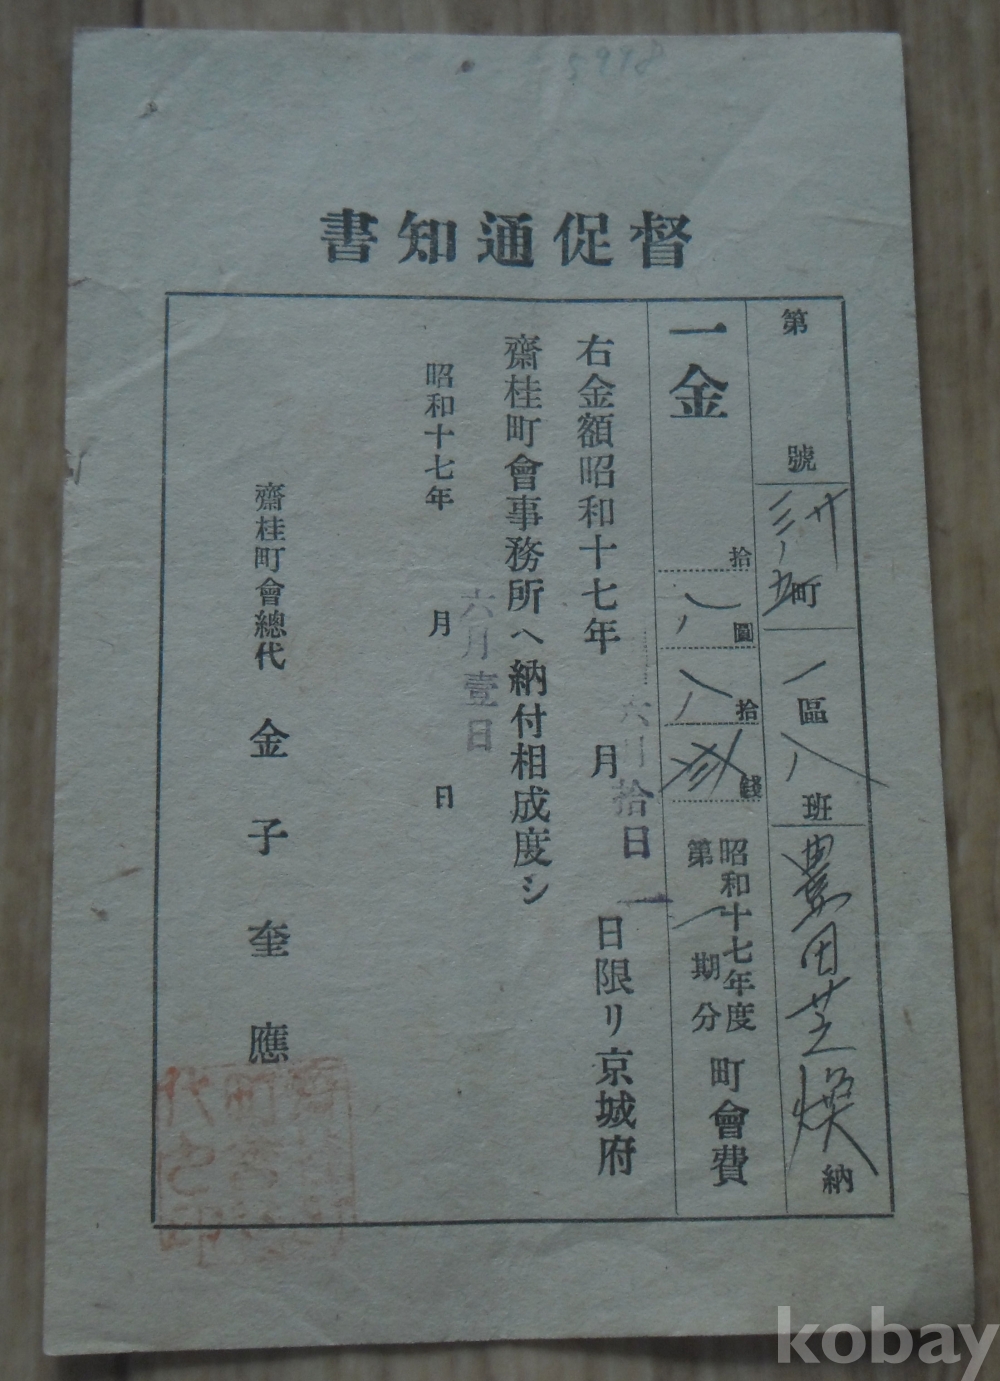 督促通知書
第 號 町 一區 八班 豊田芝煥 納
一金 拾 八圓 八拾 錢 昭和十七年度 第一期分 町會費
右金額昭和十七年 月 日限リ京城府
六月拾日
齋桂町會事務所ヘ納付相成度シ
昭和十七年 月 日
六月壹日
齋桂町會總代 金子奎應
kobay